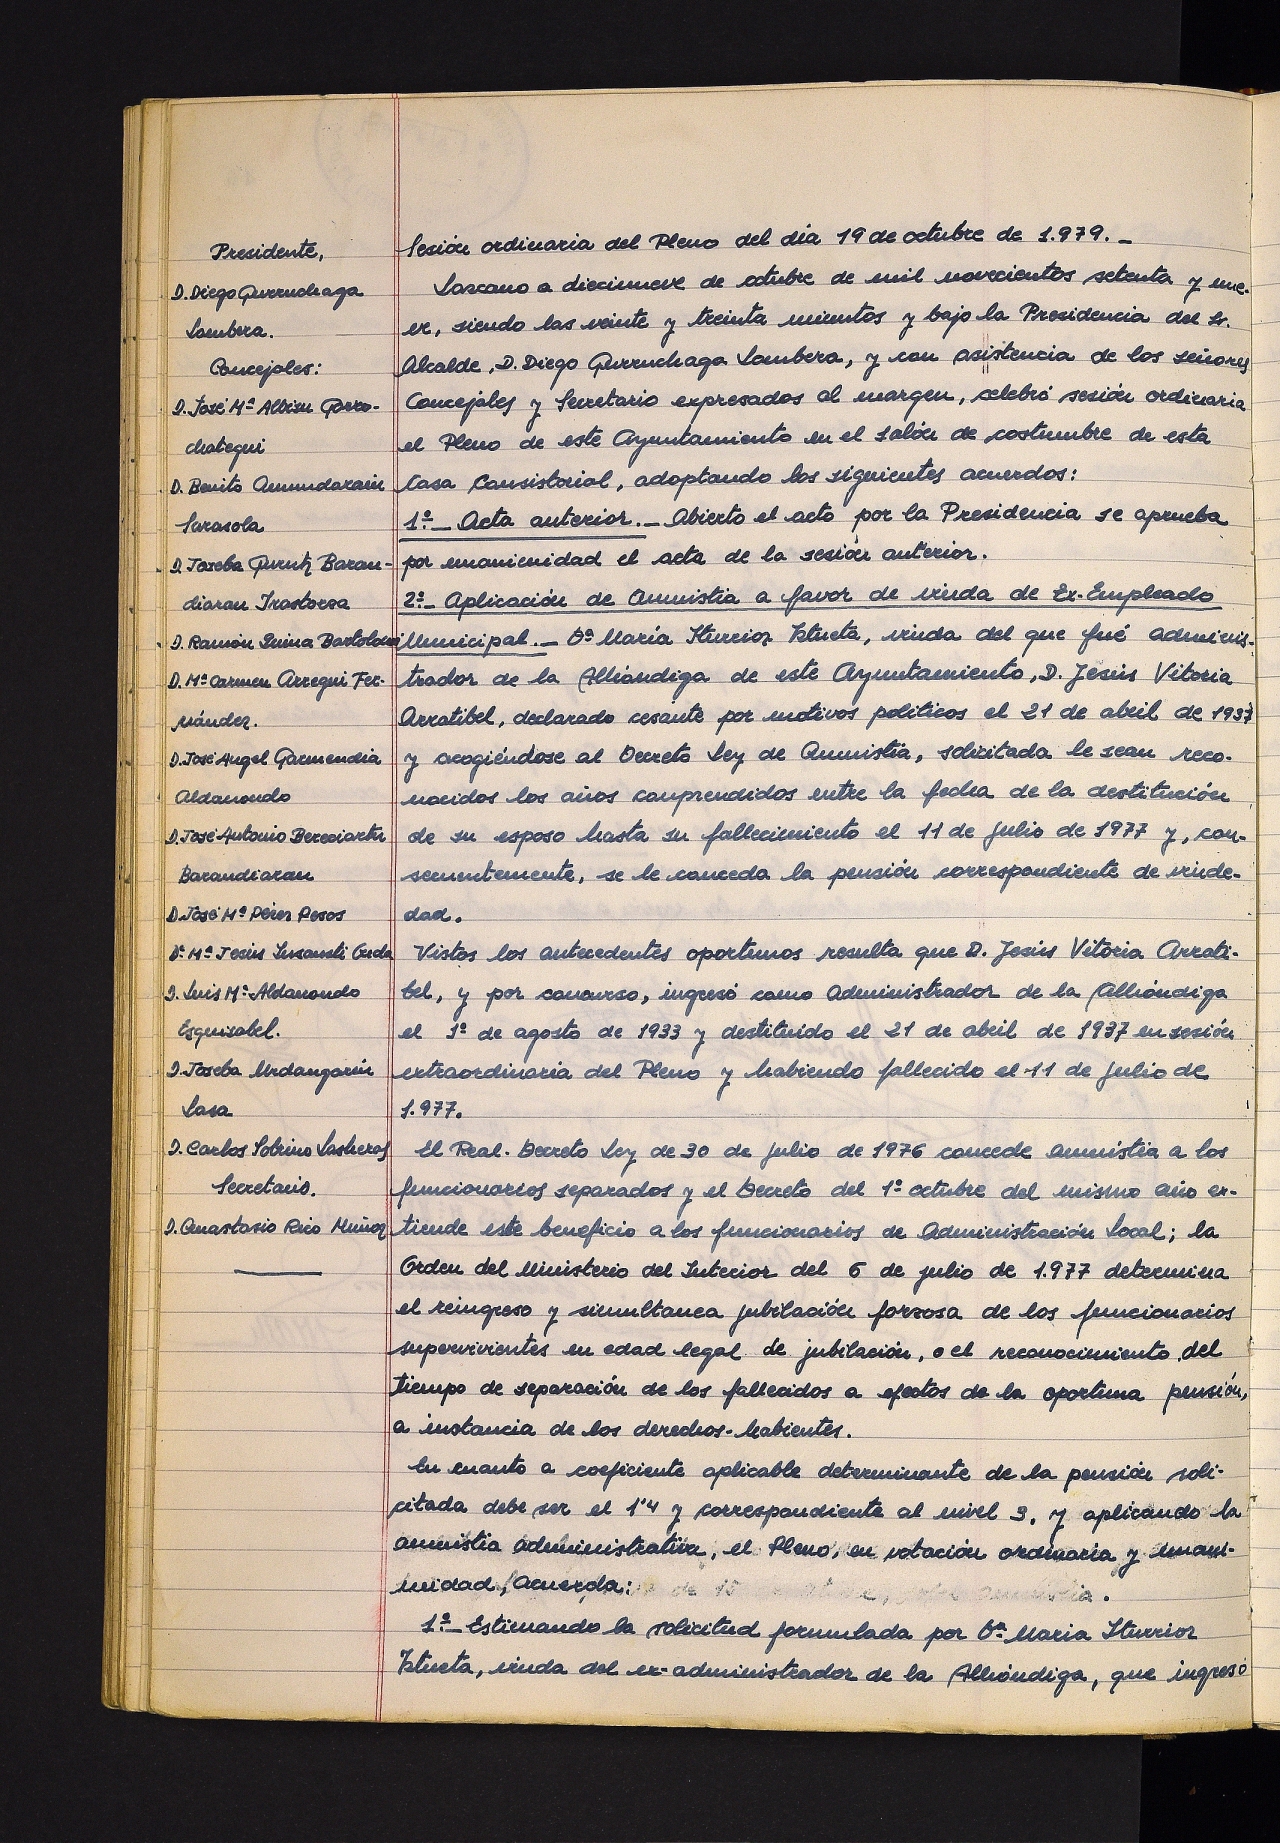 Presidente,
D. Diego Gurruchaga
Lambera.
Concejales:
D. José Mª Albisu Garro-
chategui
D. Benito Amundarain
Sarasola
D. Joseba Gurutz Baran-
diaran Irastorza
D. Ramón Quina Bartolomé
D. Mª Carmen Arregui Fer-
nández.
D. José Angel Garmendia
Aldanondo
D. José Antonio Bereciartu
Barandiaran
D. José Mª Pérez Pesos
Dª Mª Jesús
D. Luis Mª Aldanondo
Esquisabel.
D. Joseba Urdangarin
Lasa
D. Carlos Sobrino Lasheras
Secretario.
D. Anastasio Rico Muñoz
Sesión ordinaria del Pleno del día 19 de octubre de 1.979. _
Lazcano a diecinueve de octubre de mil novecientos setenta y nue-
ve, siendo las veinte y treinta minutos y bajo la Presidencia del Sr.
Alcalde, D. Diego Gurruchaga Lambera, y con asistencia de los señores
Concejales y Secretario expresados al margen, celebró sesión ordinaria
el Pleno de este Ayuntamiento en el salón de costumbre de esta
Casa Consistorial, adoptando los siguientes acuerdos:
1º._ Acta anterior._ Abierto el acto por la Presidencia se aprueba
por unanimidad el acta de la sesión anterior.
2º._ Aplicación de Amnistia a favor de viuda de Ex-Empleado
Municipal._ Dª María Iturrioz Iztueta, viuda del que fué adminis-
trador de la Alhóndiga de este Ayuntamiento, D. Jesús Vitoria
Arratibel, declarado cesante por motivos politicos el 21 de abril de 1937
y acogiéndose al Decreto Ley de Amnistia, solicitada le sean reco-
nocidos los años comprendidos entre la fecha de la destitución
de su esposo hasta su fallecimiento el 11 de julio de 1977 y, con-
secuentemente, se le conceda la pensión correspondiente de viude-
dad.
Vistos los antecedentes oportunos resulta que D. Jesús Vitoria Arrati-
bel, y por concurso, ingresó como Administrador de la Alhóndiga
el 1º de agosto de 1933 y destituído el 21 de abril de 1937 en sesión
extraordinaria del Pleno y habiendo fallecido el 11 de julio de
1.977.
El Real. Decreto Ley de 30 de julio de 1976 concede amnistia a los
funcionarios separados y el Decreto del 1º octubre del mismo año ex-
tiende este beneficio a los funcionarios de Administración Local; la
Orden del Ministerio del Interior del 6 de julio de 1.977 determina
el reingreso y simultanea jubilación forzosa de los funcionarios
supervivientes en edad legal de jubilación, o el reconocimiento del
tiempo de separación de los fallecidos a efectos de la oportuna pensión,
a instancia de los derechos-habientes.
En cuanto a coeficiente aplicable determinante de la pensión soli-
citada debe ser el 1'4 y correspondiente al nivel 3. y aplicando la
amnistia administrativa, el Pleno, en votación ordinaria y unani-
midad, Acuerda:
1º._ Estimando la solicitud formulada por Dª Maria Iturrioz
Iztueta, viuda del ex-administrador de la Alhóndiga, que ingresó